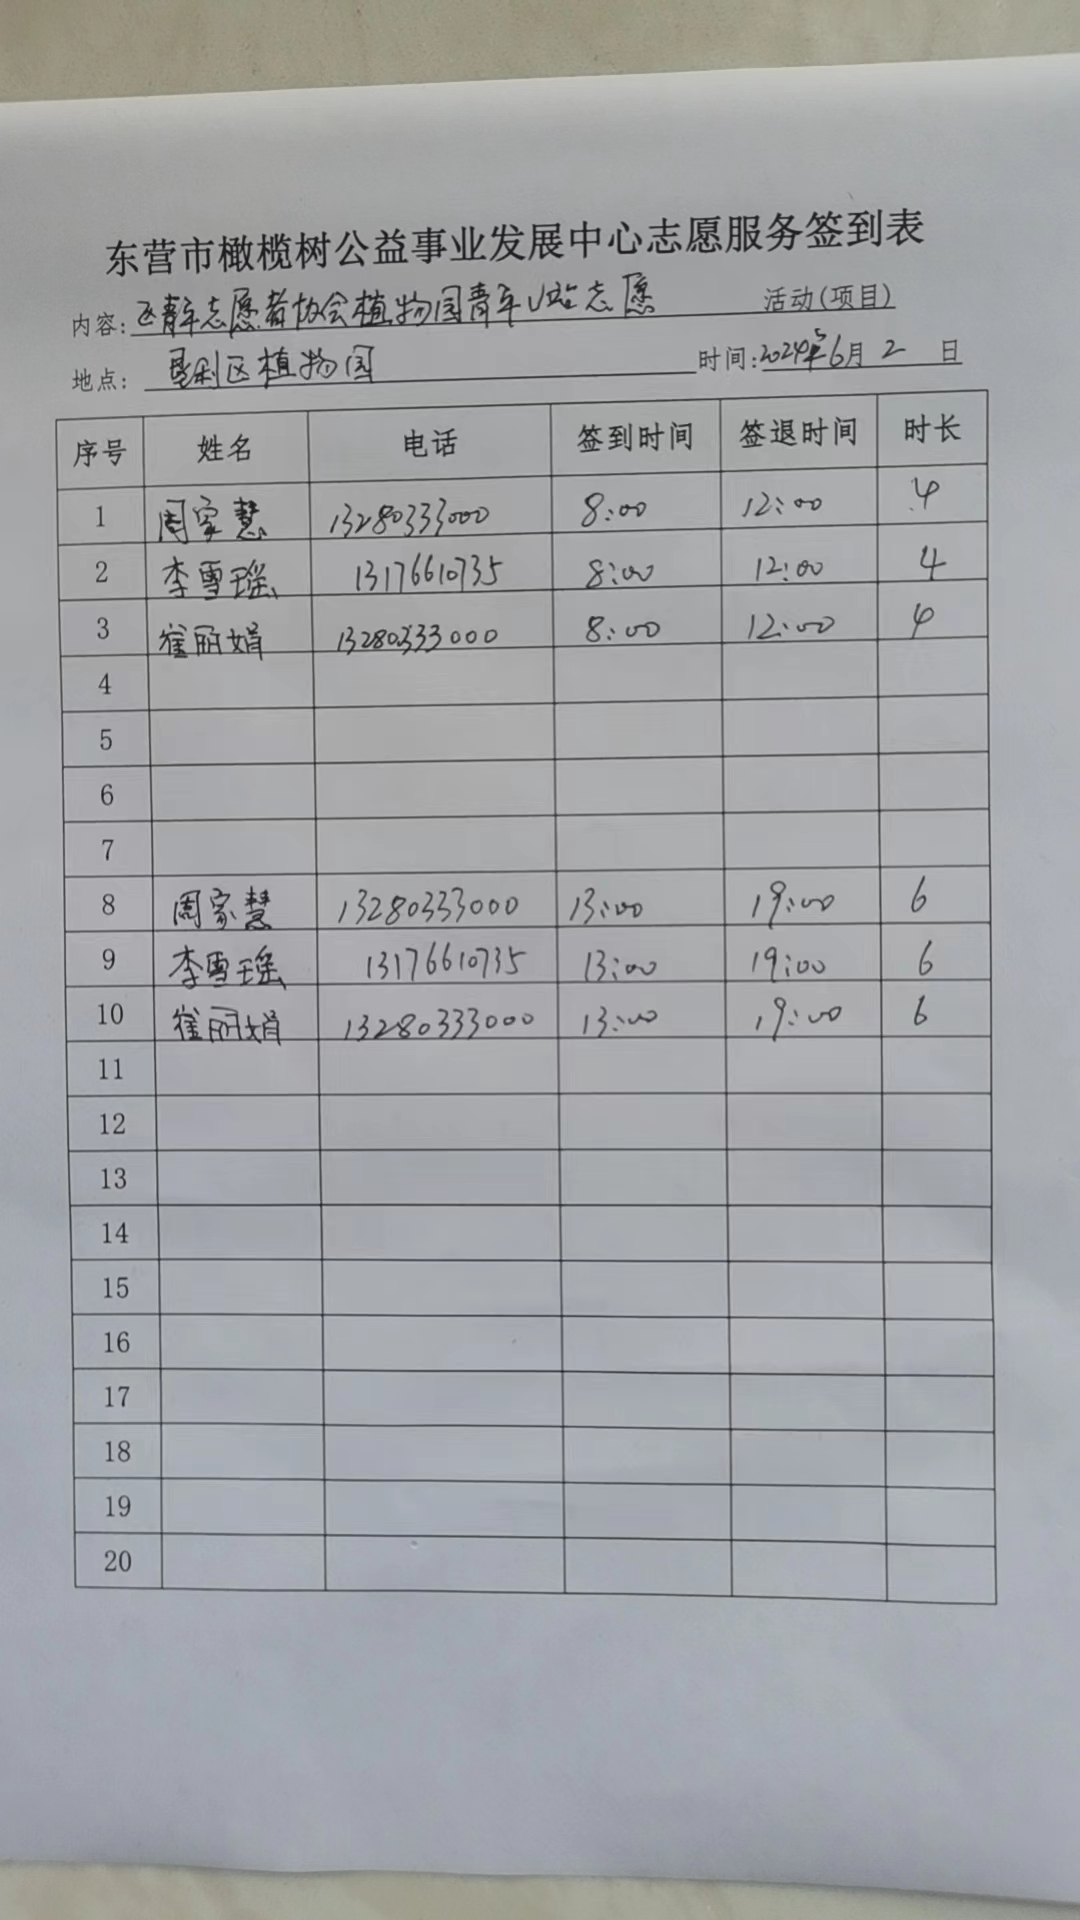 东营市橄榄树公益事业发展中心志愿服务签到表
内容:区青年志愿者协会植物园青年U站志愿 活动(项目)
地点: 垦利区植物园 时间:2024年6月2日
序号 姓名 电话 签到时间 签退时间 时长
1 周家慧 13280333000 8:00 12:00 4
2 李雪瑶 13176610735 8:00 12:00 4
3 崔丽娟 13280333000 8:00 12:00 4
4
5
6
7
8 周家慧 13280333000 13:00 19:00 6
9 李雪瑶 13176610735 13:00 19:00 6
10 崔丽娟 13280333000 13:00 19:00 6
11
12
13
14
15
16
17
18
19
20